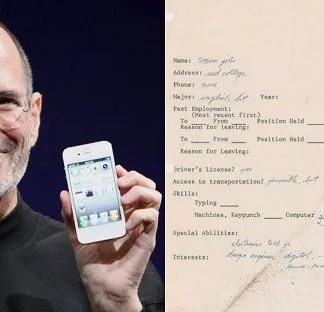 Name: Steven jobs
Address: reed college
Phone: none
Major: english lit Year:
Past Employment:
(Most recent first)
To From Position Held
Reason for leaving:
To From Position Held
Reason for Leaving:
Driver's License? yes
Access to transportation? possible, but
Skills:
Typing
Machines, Keypunch Computer
Special Abilities:
electronics tech or
Interests: design engineer, digital.